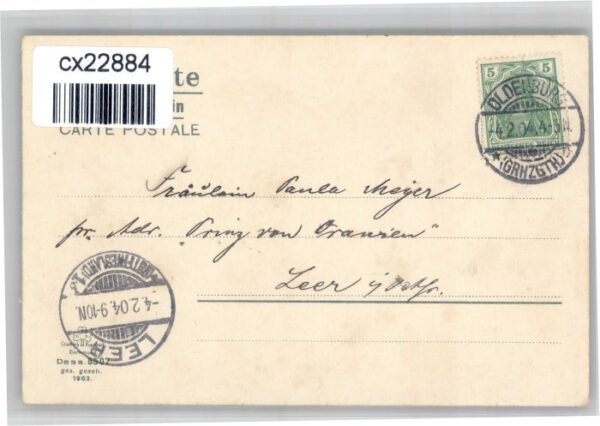 cx22884
te
in
CARTE POSTALE
5 5
OLDENBURG
-4.2.04.4-5N.
*(GRHZGTH)*
Fräulein Paula Meyer
pr. Adr. "Prinz von Oranien"
Leer i/Ostfr.
-4.2.04.9-10N.
LEER
Dess. 5507
ges. gesch.
1903.